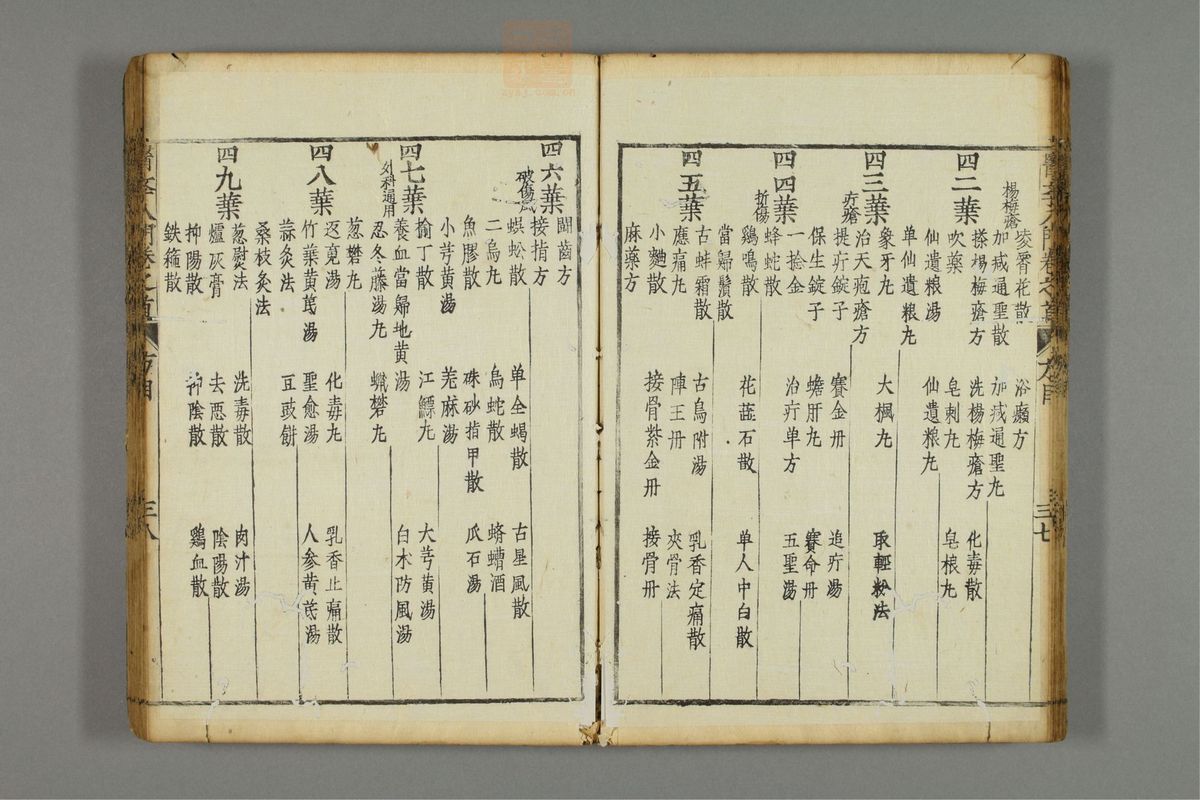 四二葉
楊梅瘡
凌霄花散　浴癩方
加減通聖散　加減通聖九
搽楊梅瘡方　洗楊梅瘡方　化毒散
吹藥　皂刺九　皂根九
仙遺粮湯　仙遺粮九
单仙遺粮九
四三葉
疔瘡
象牙九　大楓九　取輕粉法
治天疱瘡方
提疔錠子　賽金丹　追疔湯
保生錠子　蟾肝九　賽命丹
一捻金　治疔单方　五聖湯
四四葉
折傷
蜂蛇散
鷄鳴散　花蕋石散　单人中白散
當歸鬚散
四五葉
古蚌霜散　古烏附湯　乳香定痛散
應痛九　陣王丹　夾骨法
小麯散　接骨紫金丹　接骨丹
麻藥方
三七
四六葉
破傷風
鬬齒方
接指方
蜈蚣散　单全蝎散　古星風散
二烏九　烏蛇散　蠐螬酒
魚膠散　硃砂指甲散　瓜石湯
小芎黄湯　羌麻湯
四七葉
外科通用
榆丁散　江鰾九　大芎黄湯
養血當歸地黄湯　白木防風湯
忍冬藤湯九　蠟礬九
葱礬九
四八葉
返䰟湯　化毒九　乳香止痛散
竹葉黄芪湯　聖愈湯　人参黄芪湯
蒜灸法　豆豉餅
桑枝灸法
四九葉
葱熨法　洗毒散　肉汁湯
爐灰膏　去惡散　陰陽散
抑陽散　抑陰散　鷄血散
鉄箍散
三八